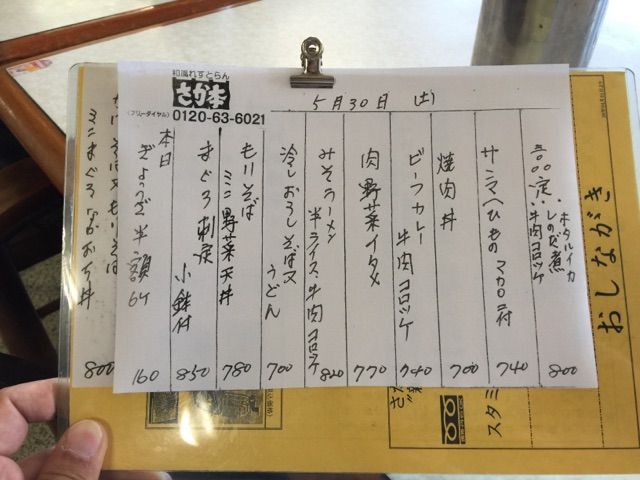 和風れすとらん
さか本
〈フリーダイヤル〉0120-63-6021
5月30日 (土)
ホタルイカ
しのだ煮
・牛肉コロッケ
800
サンマ(ひもの マカロニ付
740
焼肉丼
700
ビーフカレー
牛肉コロッケ
740
肉野菜イタメ
770
みそラーメン
半ライス 牛肉コロッケ
820
冷しおろしそば又
うどん
700
もりそば
ミニ野菜天丼
780
まぐろ刺定
小鉢付
850
本日
ぎょうざ半額
6ケ
160
ミニまぐろ
800
おしながき
スタミ